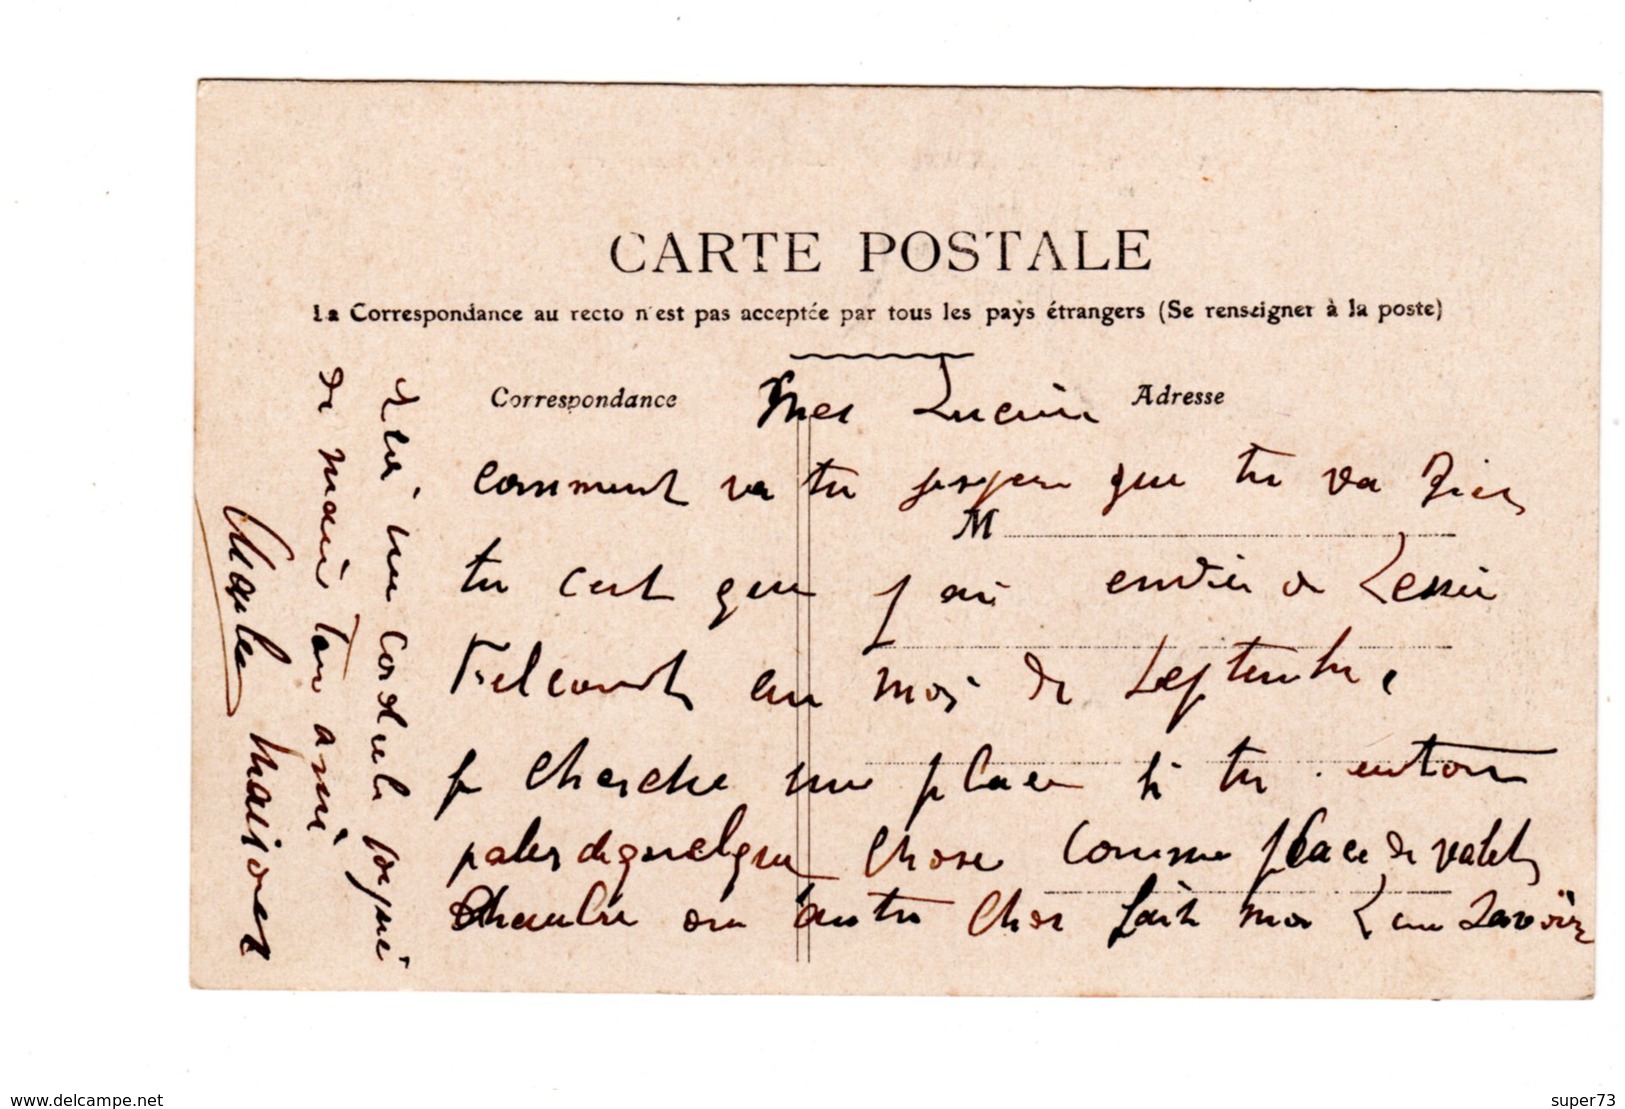 CARTE POSTALE
La Correspondance au recto n'est pas acceptée par tous les pays étrangers (Se renseigner à la poste)
Correspondance
Adresse
M
Lucien
comment va tu que tu va bien
tu cest que j ai envie de
au mois de Septembre
je cherche une place si tu enton
parler de quelque chose comme place de valet
chambre ou autre chose fait moi le savoir
un cordiale poigné
de main ton ami
Charles
www.delcampe.net
super73